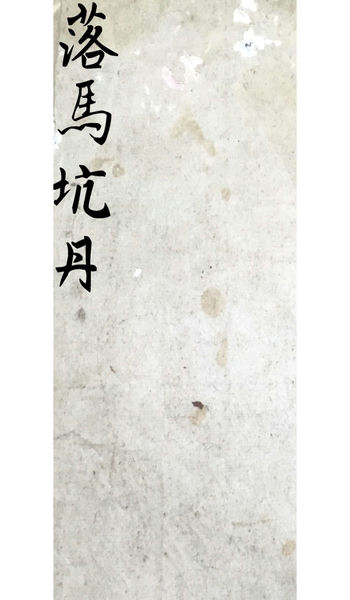 落馬坑丹